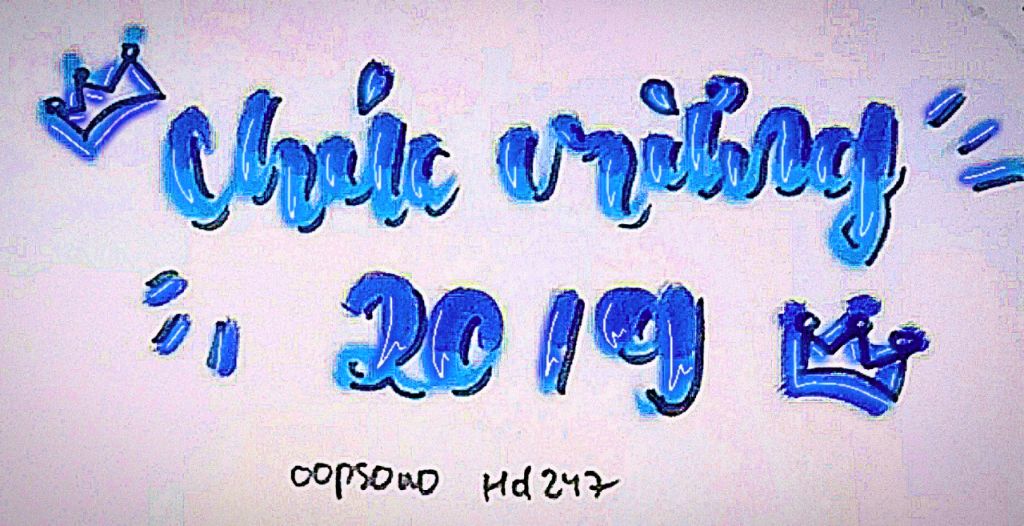 Chúc mừng
2019
Hd247